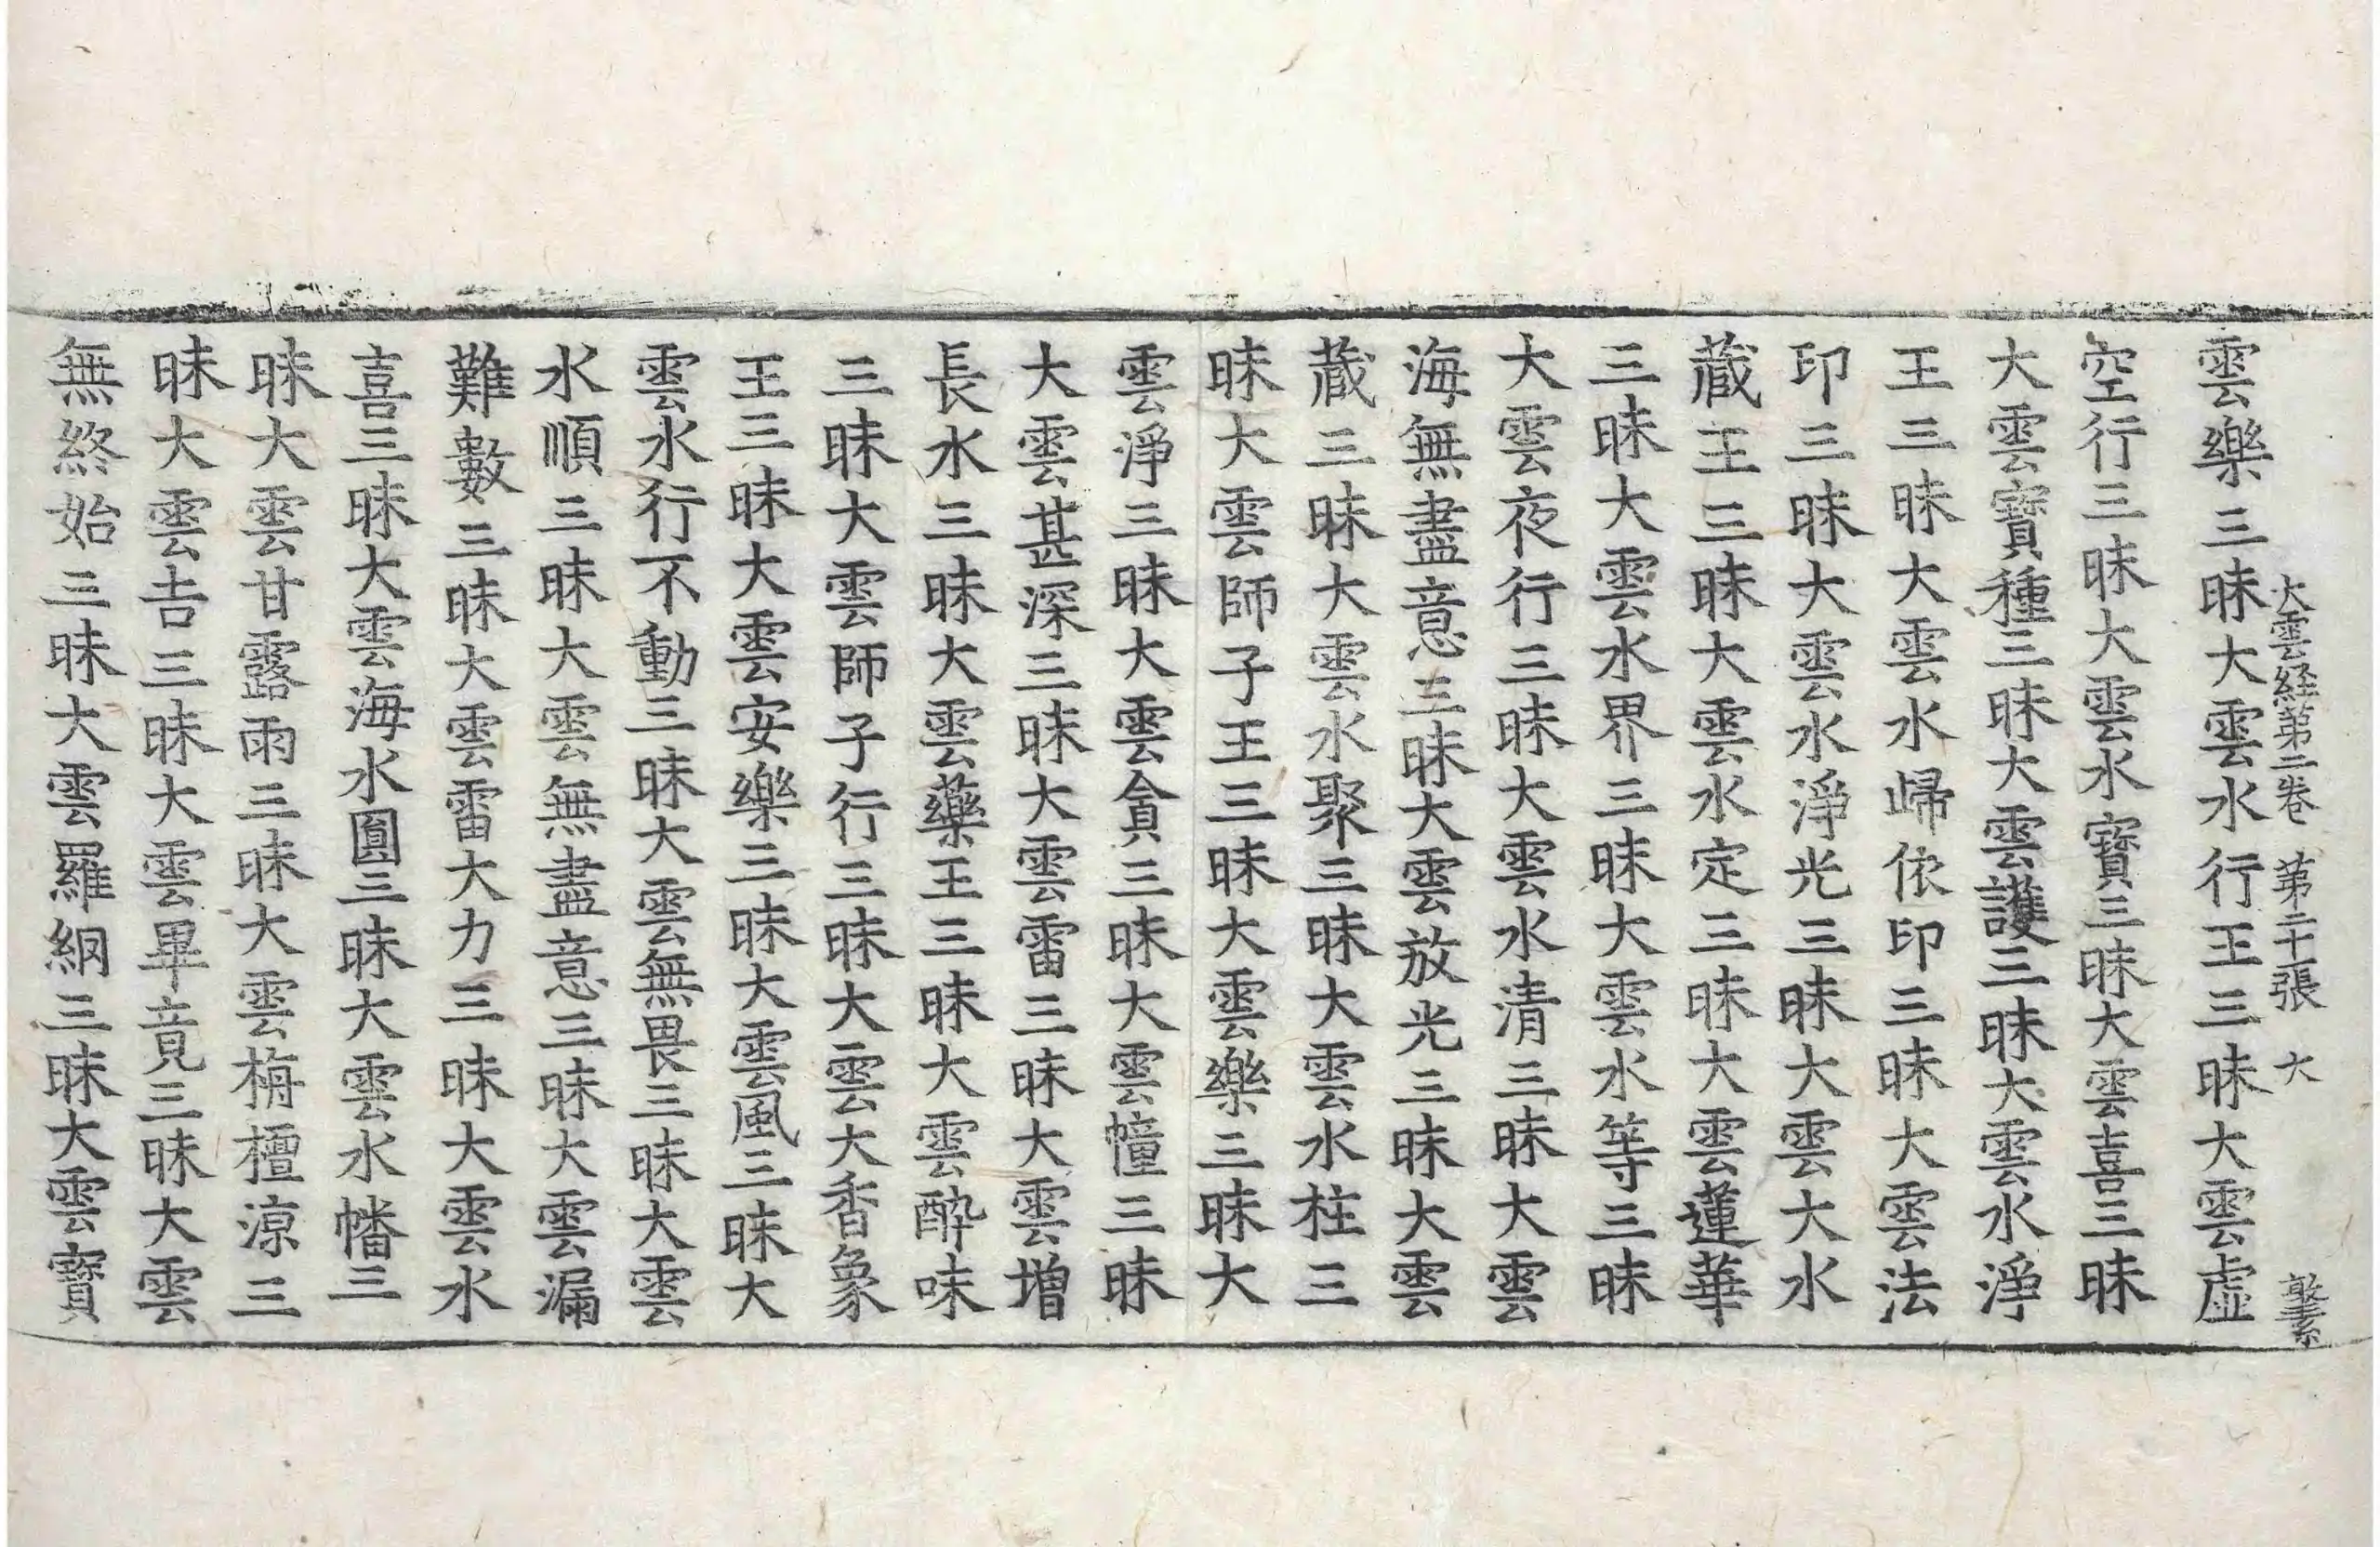 大雲経第二巻 第二十張 大
雲樂三昧大雲水行王三昧大雲虛
空行三昧大雲水寶三昧大雲喜三昧
大雲寶種三昧大雲護三昧大雲水淨
王三昧大雲水歸依印三昧大雲法
印三昧大雲水淨光三昧大雲大水
藏王三昧大雲水定三昧大雲蓮華
三昧大雲水界三昧大雲水等三昧
大雲夜行三昧大雲水清三昧大雲
海無盡意三昧大雲放光三昧大雲
藏三昧大雲水聚三昧大雲水柱三
昧大雲師子王三昧大雲樂三昧大
雲淨三昧大雲貪三昧大雲幢三昧
大雲甚深三昧大雲雷三昧大雲增
長水三昧大雲藥王三昧大雲酔味
三昧大雲師子行三昧大雲大香象
王三昧大雲安樂三昧大雲風三昧大
雲水行不動三昧大雲無畏三昧大雲
水順三昧大雲無盡意三昧大雲漏
難數三昧大雲雷大力三昧大雲水
喜三昧大雲海水圓三昧大雲水幡三
昧大雲甘露雨三昧大雲栴檀涼三
昧大雲吉三昧大雲畢竟三昧大雲
無終始三昧大雲羅網三昧大雲寶